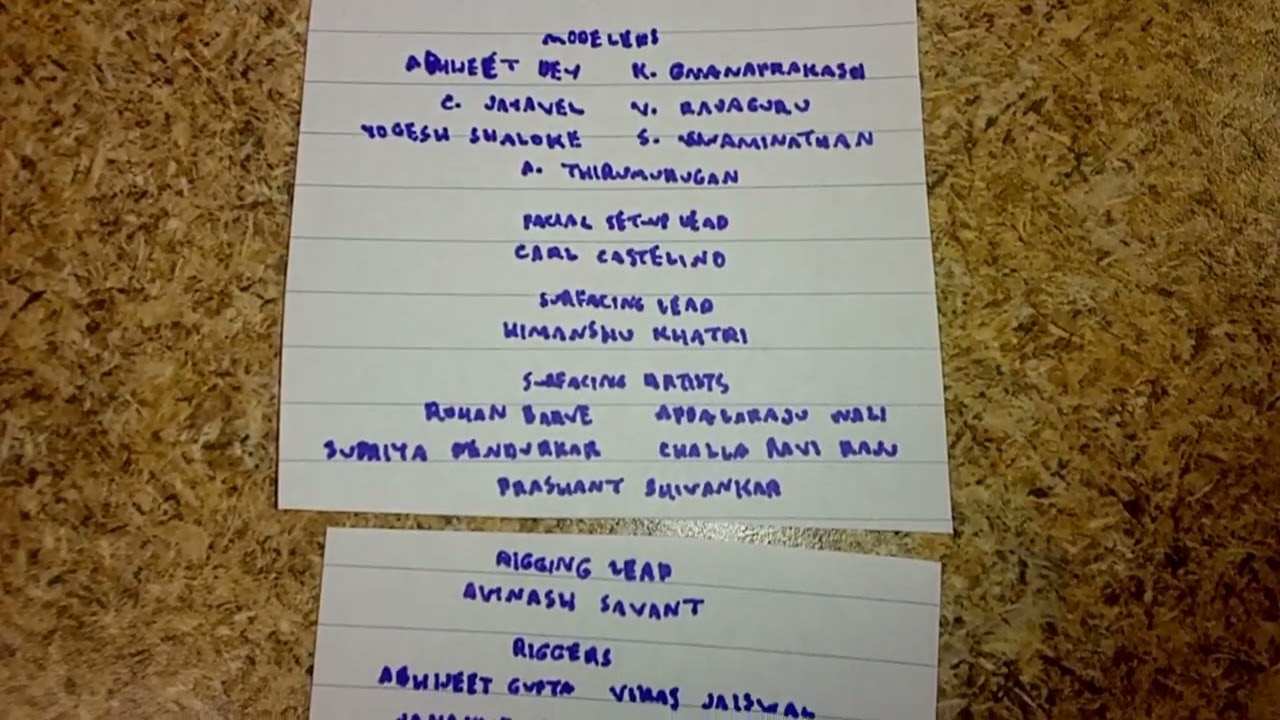 MODELERS
ABHIJEET DEY K. GNANAPRAKASH
C. JAYAVEL V. RAJAGURU
YOGESH SHALOKE S. SWAMINATHAN
A. THIRUMURUGAN
FACIAL SET-UP LEAD
CARL CASTELINO
SURFACING LEAD
HIMANSHU KHATRI
SURFACING ARTISTS
ROHAN BARVE APPALARAJU WALI
SUPRIYA PENDURKAR CHALLA RAVI RAJU
PRASHANT SHIVANKAR
RIGGING LEAD
AVINASH SAVANT
RIGGERS
ABHIJEET GUPTA VIKAS JAISWAL